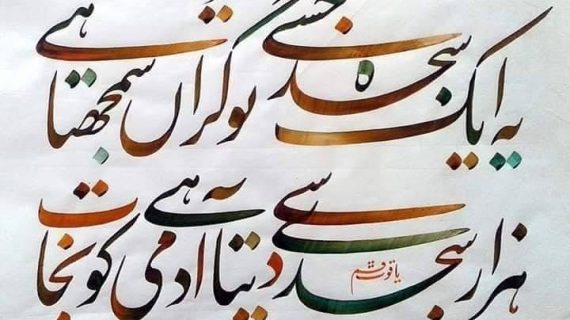 یہ ایک سجدہ جسے تو گراں سمجھتا ہے
ہزار سجدے سے دیتا ہے آدمی کو نجات
یاقوت رقم